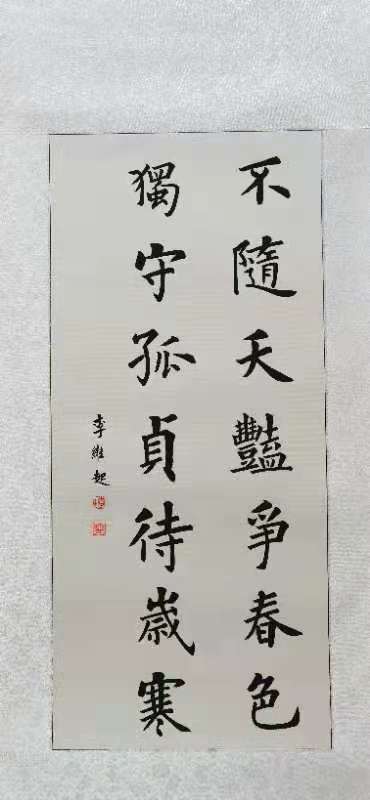 不隨夭豔爭春色
獨守孤貞待歲寒
李維起